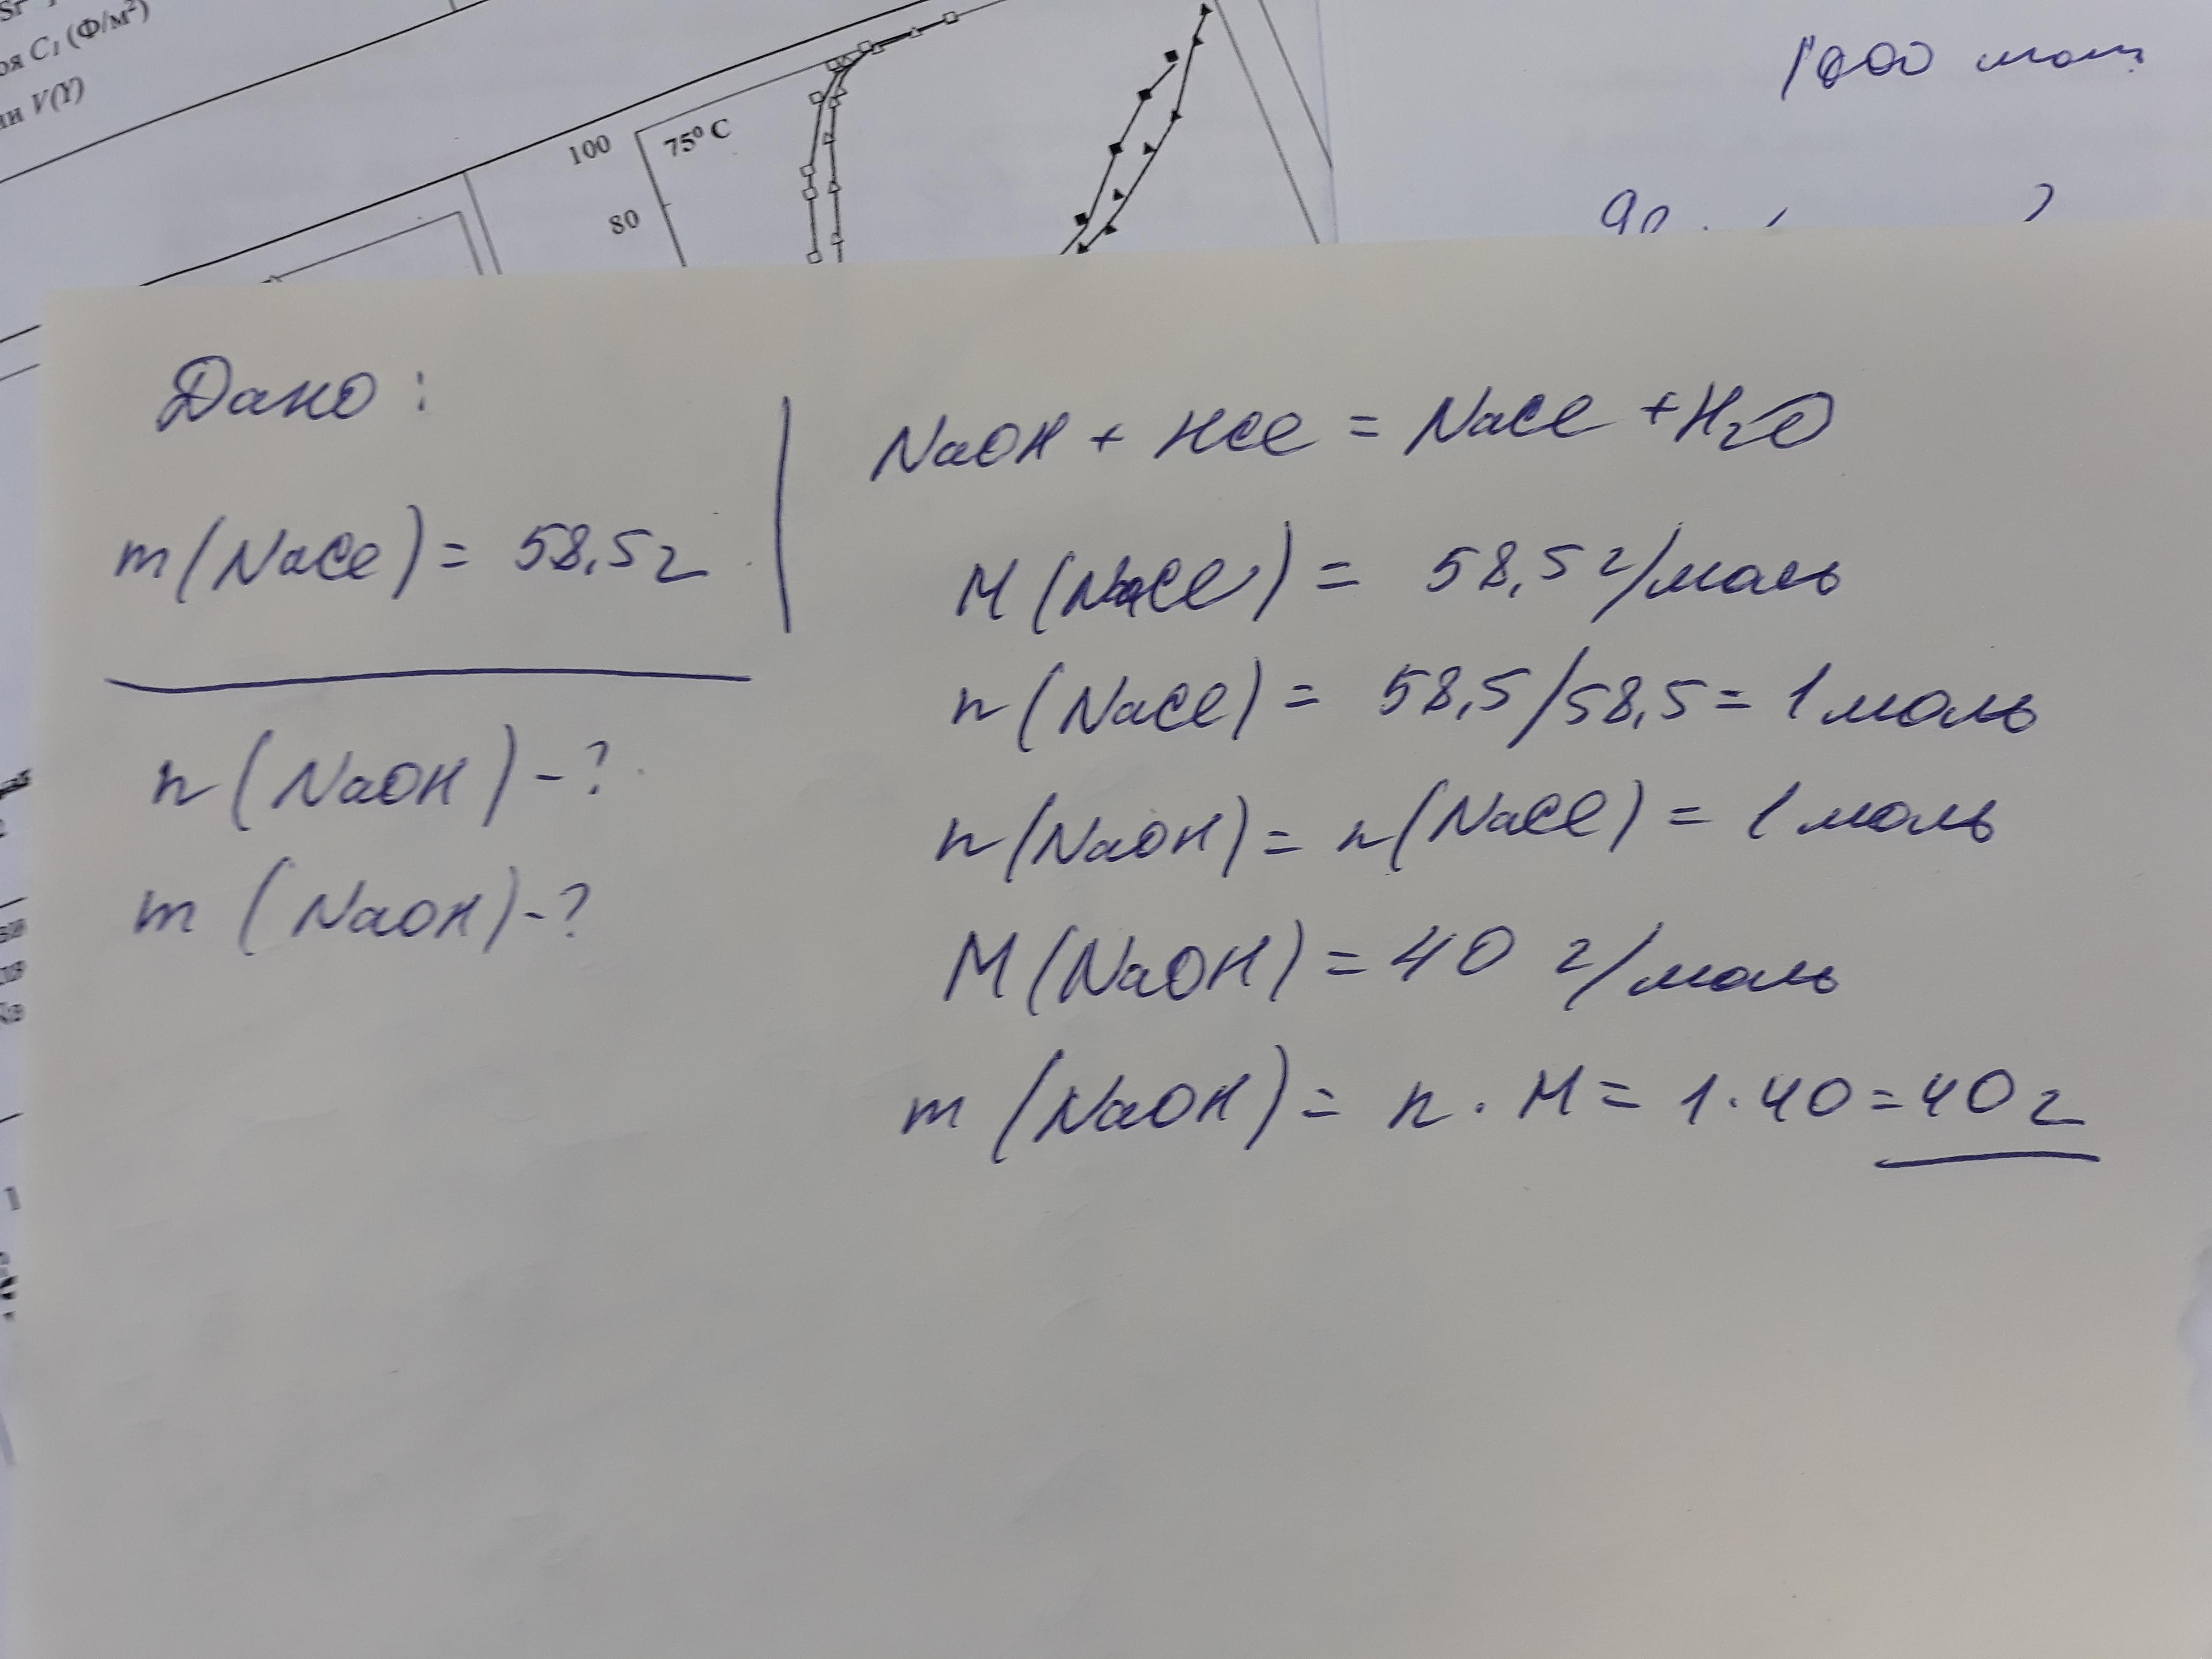 оя C₁ (Ф/м²)
ии V(Y)
100
75⁰ C
80
1000
90
Дано:
m(NaCl) = 58,5 г
n(NaOH) - ?
m(NaOH) - ?
NaOH + HCl = NaCl + H₂O
M(NaCl) = 58,5 г/моль
n(NaCl) = 58,5/58,5 = 1 моль
n(NaOH) = n(NaCl) = 1 моль
M(NaOH) = 40 г/моль
m(NaOH) = n · M = 1 · 40 = 40 г